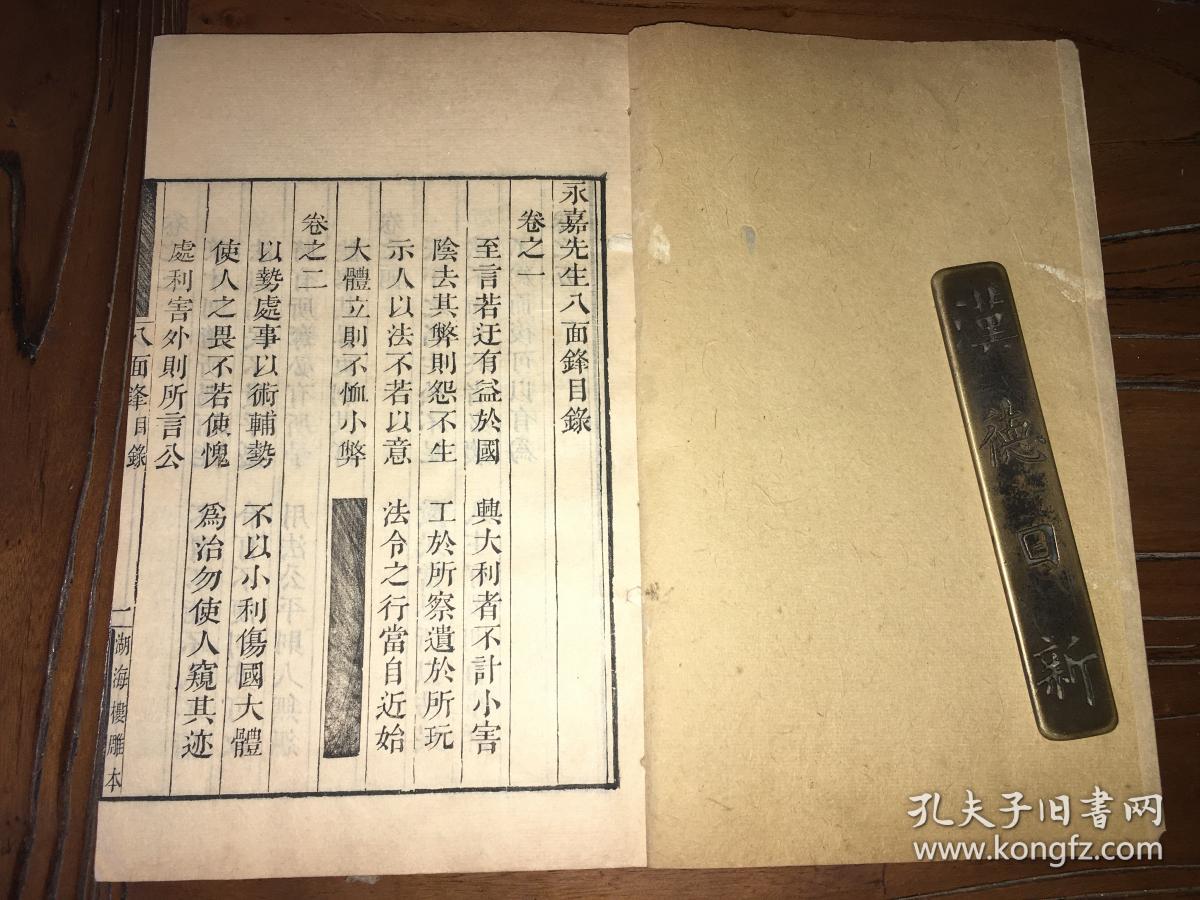 永嘉先生八面鋒目錄
卷之一
至言若迂有益於國　興大利者不計小害
陰去其弊則怨不生　工於所察遺於所玩
示人以法不若以意　法令之行當自近始
大體立則不恤小弊
卷之二
以勢處事以術輔勢　不以小利傷國大體
使人之畏不若使愧　爲治勿使人窺其迹
處利害外則所言公
八面鋒目錄　一　湖海樓雕本
德日新
孔夫子旧书网
www.kongfz.com